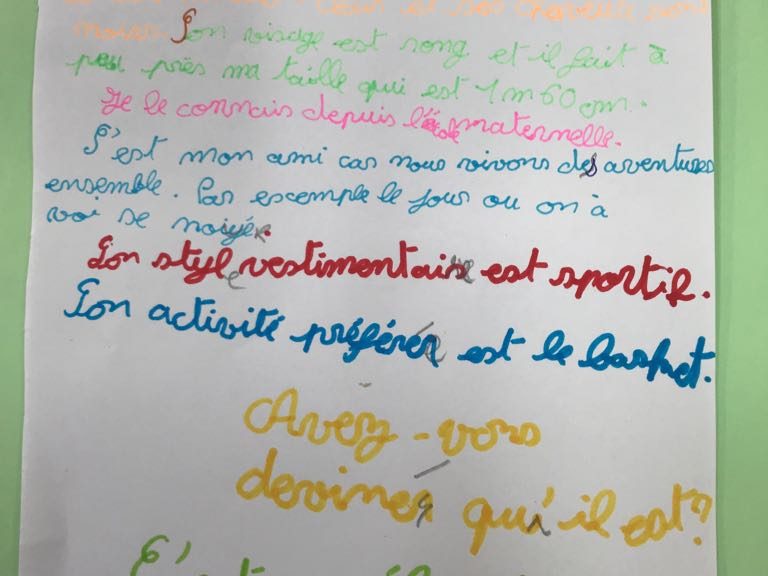 ses cheveux sont
Son visage est rong et il fait à
peu près ma taille qui est 1m60 cm.
Je le connais depuis l'école maternelle.
C'est mon ami cas nous vivons des aventures
ensemble. Par escemple le jour ou on à
voi se noiyée.
Son style vestimentaire est sportif.
Son activité préférée est le basket.
Avez-vous
deviner qui il est?